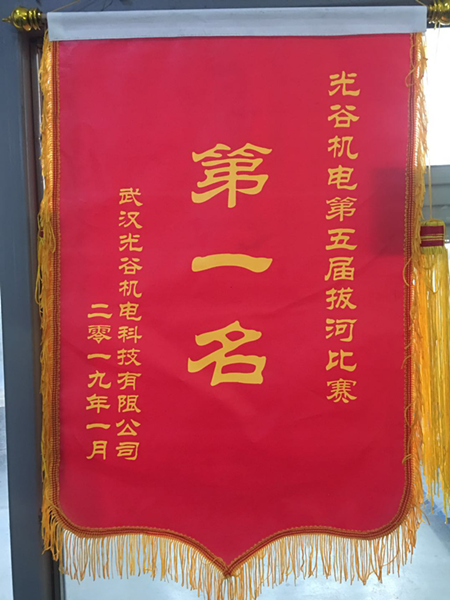 光谷机电第五届拔河比赛
第一名
武汉光谷机电科技有限公司
二零一九年一月